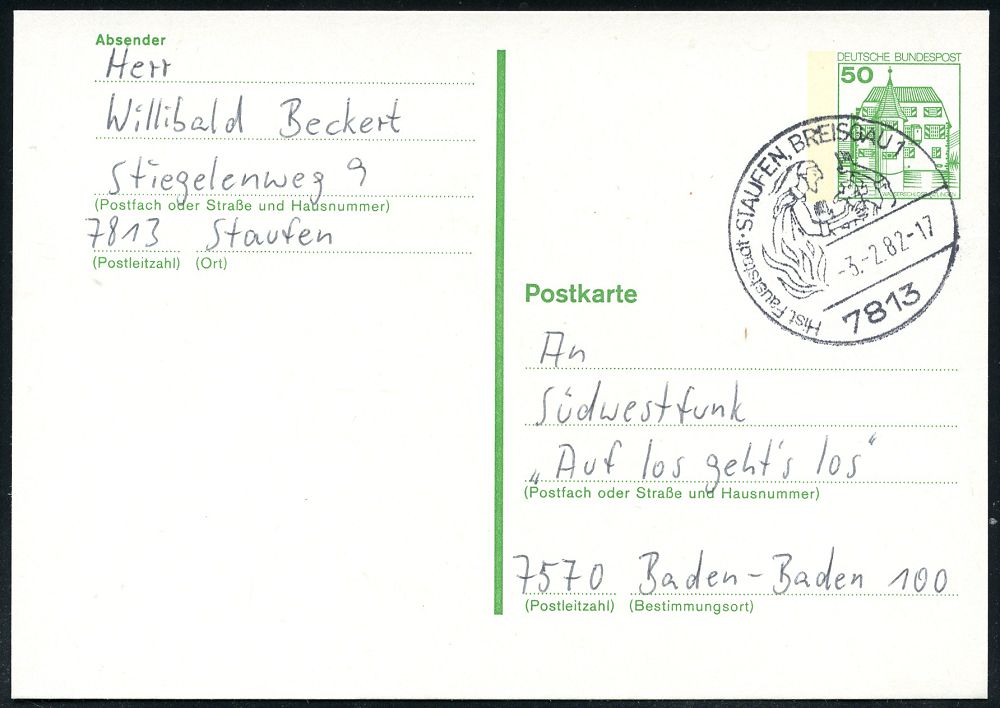 Absender
Herr
Willibald Beckert
Stiegelenweg 9
(Postfach oder Straße und Hausnummer)
7813 Staufen
(Postleitzahl) (Ort)
DEUTSCHE BUNDESPOST
50
STAUFEN, BREISGAU 1
-3.-2.82-17
7813
Hist. Fauststadt
Postkarte
An
Südwestfunk
„Auf los geht's los“
(Postfach oder Straße und Hausnummer)
7570 Baden-Baden 100
(Postleitzahl) (Bestimmungsort)